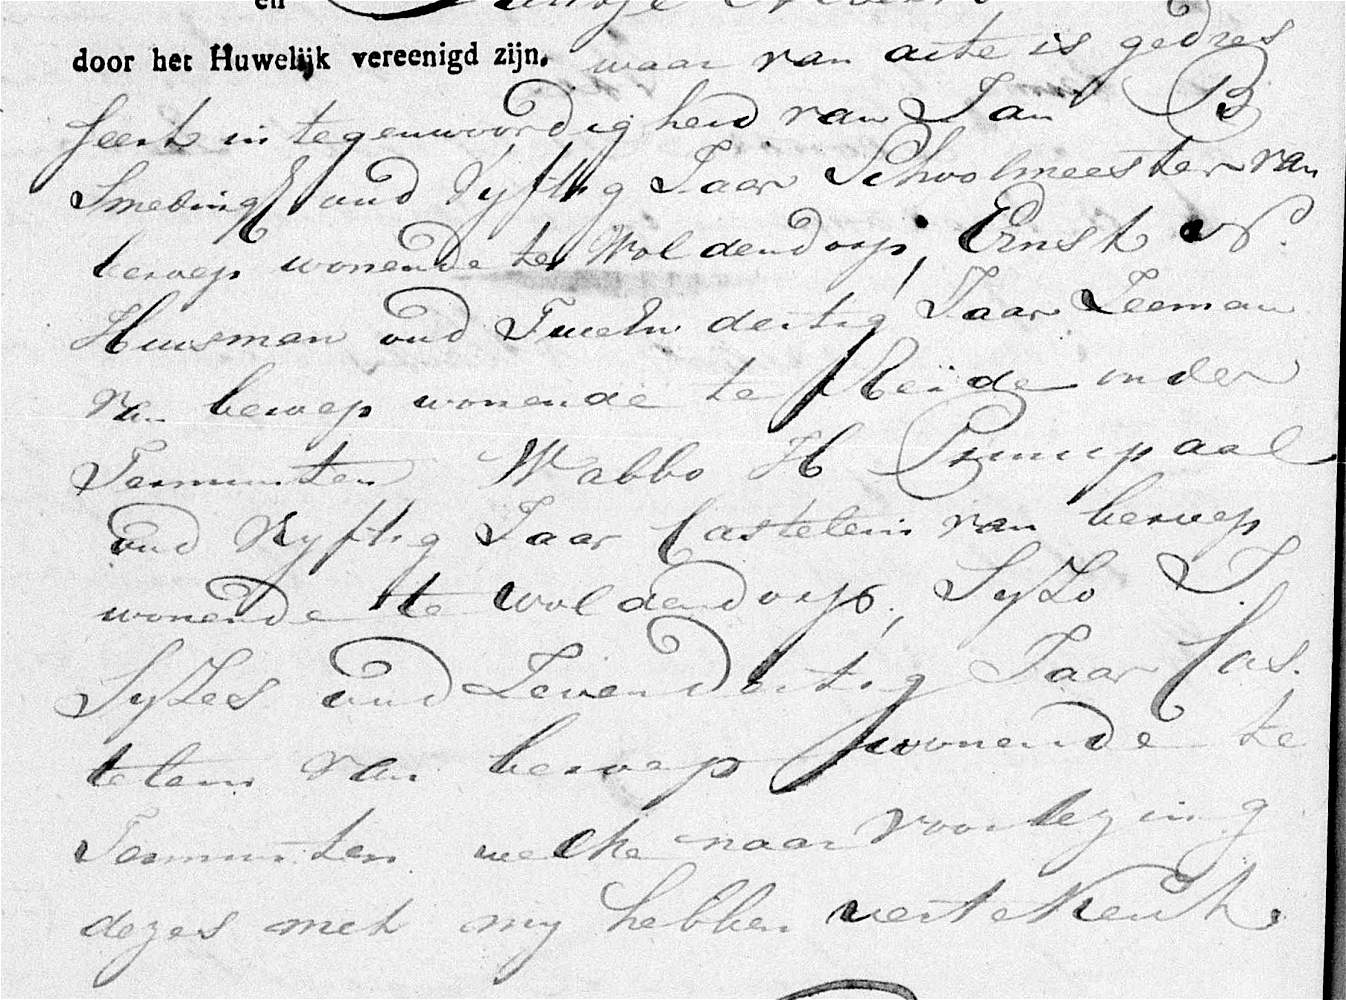 en
door het Huwelijk vereenigd zijn. waar van acte is gedres
seert in tegenwoordigheid van Jan B
Smeding oud Vyftig Jaar Schoolmeester van
beroep wonende te Woldendorp, Ernst N.
Huisman oud Twein dertig Jaar Leeman
van beroep wonende te Heide onder
Termunten Wabbo H Principaal
oud Vyftig Jaar Castelein van beroep
wonende te Woldendorp, Sytzo J.
Sytzes oud Zevendertig Jaar Cas.
telein van beroep wonende te
Termunten welke naar voorlezing
dezes met my hebben vertekent.